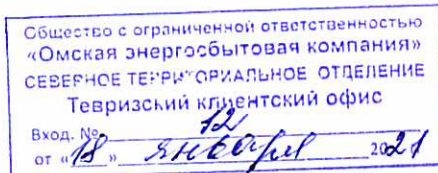 Общество с ограниченной ответственностью
«Омская энергосбытовая компания»
СЕВЕРНОЕ ТЕРРИТОРИАЛЬНОЕ ОТДЕЛЕНИЕ
Тевризский клиентский офис
Вход. № 12
от «18» января 2021